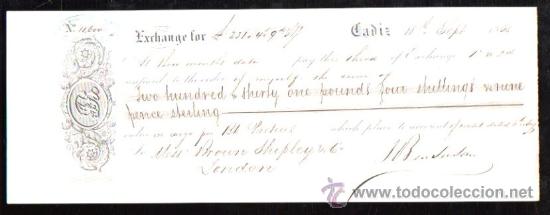 Nº 11,600
Exchange for £231.4.9 Stg
Cadiz 11th Sept
At three months date pay this third of Exchange 1st & 2nd
unpaid to the order of myself the sum of
Two hundred & thirty one pounds four shillings & nine
pence sterling
value in cargo per which place to account of
Messrs Brown Shipley & Co
London
© www.todocoleccion.net